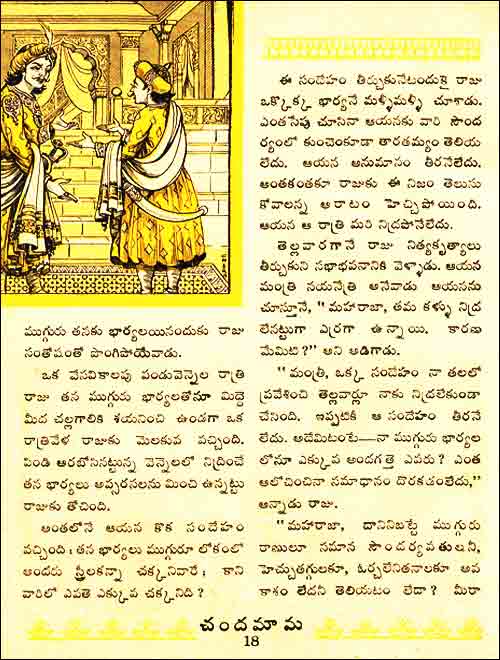 ముగ్గురు తనకు భార్యలయినందుకు రాజు
సంతోషంతో పొంగిపోయేవాడు.
ఒక వేసవికాలపు పండువెన్నెల రాత్రి
రాజు తన ముగ్గురు భార్యలతోనూ మిద్దె
మీద చల్లగాలికి శయనించి ఉండగా ఒక
రాత్రివేళ రాజుకు మెలకువ వచ్చింది.
పిండి ఆరబోసినట్టున్న వెన్నెలలో నిద్రించే
తన భార్యలు అప్సరసలను మించి ఉన్నట్టు
రాజుకు తోచింది.
అంతలోనే ఆయన కొక సందేహం
వచ్చింది: తన భార్యలు ముగ్గురూ లోకంలో
అందరు స్త్రీలకన్నా చక్కనివారే; కాని
వారిలో ఎవతె ఎక్కువ చక్కనిది?
ఈ సందేహం తీర్చుకునేటందుకై రాజు
ఒక్కొక్క భార్యనే మళ్ళీమళ్ళీ చూశాడు.
ఎంతసేపు చూసినా ఆయనకు వారి సౌంద
ర్యంలో కుంచెంకూడా తారతమ్యం తెలియ
లేదు. ఆయన అనుమానం తీరనేలేదు.
అంతకంతకూ రాజుకు ఈ నిజం తెలుసు
కోవాలన్న ఆరాటం హెచ్చిపోయింది.
ఆయన ఆ రాత్రి మరి నిద్రపోనేలేదు.
తెల్లవారగానే రాజు నిత్యకృత్యాలు
తీర్చుకుని సభాభవనానికి వెళ్ళాడు. ఆయన
మంత్రి నయనేత్రి అనేవాడు ఆయనను
చూస్తూనే, "మహారాజా, తమ కళ్ళు నిద్ర
లేనట్టుగా ఎర్రగా ఉన్నాయి. కారణ
మేమిటి?" అని అడిగాడు.
"మంత్రీ, ఒక్క సందేహం నా తలలో
ప్రవేశించి తెల్లవార్లూ నాకు నిద్రలేకుండా
చేసింది. ఇప్పటికి ఆ సందేహం తీరనే
లేదు. అదేమిటంటే—నా ముగ్గురు భార్యల
లోనూ ఎక్కువ అందగత్తె ఎవరు? ఎంత
ఆలోచించినా సమాధానం దొరకడంలేదు,"
అన్నాడు రాజు.
"మహారాజా, దానినిబట్టే ముగ్గురు
రాణులూ సమాన సౌందర్యవతులనీ,
హెచ్చుతగ్గులకూ, ఓర్చలేనితనాలకూ అవ
కాశం లేదని తెలియటం లేదా? మీరా
చందమామ
18